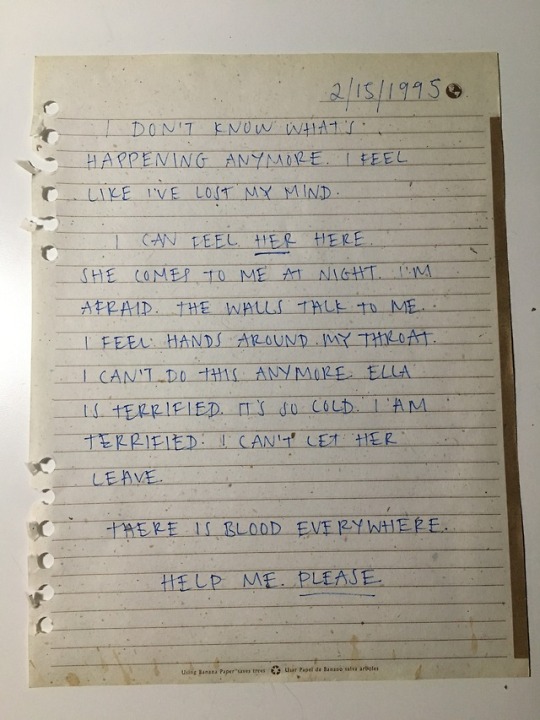 2/15/1995
I DON'T KNOW WHAT'S
HAPPENING ANYMORE. I FEEL
LIKE I'VE LOST MY MIND.
I CAN FEEL HER HERE.
SHE COMES TO ME AT NIGHT. I'M
AFRAID. THE WALLS TALK TO ME.
I FEEL HANDS AROUND MY THROAT.
I CAN'T DO THIS ANYMORE. ELLA
IS TERRIFIED. IT'S SO COLD. I AM
TERRIFIED. I CAN'T LET HER
LEAVE.
THERE IS BLOOD EVERYWHERE.
HELP ME. PLEASE.
Using Banana Paper saves trees User Papel de Banano salva arboles